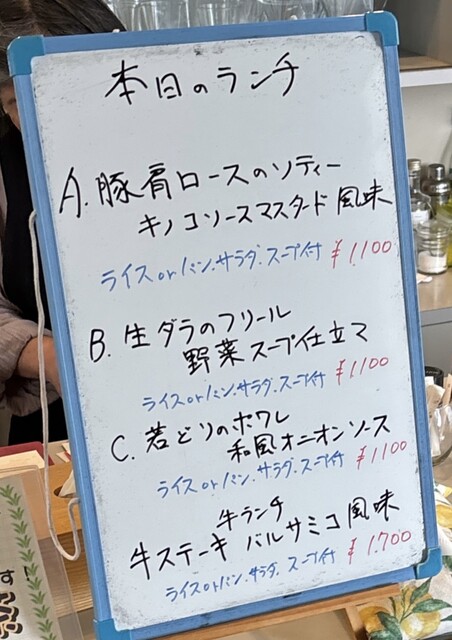 本日のランチ
A. 豚肩ロースのソティー
キノコソースマスタード風味
ライスorパン.サラダ.スープ付 ¥1,100
B. 生ダラのフリール
野菜スープ仕立マ
ライスorパン.サラダ.スープ付 ¥1,100
C. 若どりのポワレ
和風オニオンソース
ライスorパン.サラダ.スープ付 ¥1,100
牛ランチ
牛ステーキ バルサミコ風味
ライスorパン.サラダ.スープ付 ¥1,700
す!